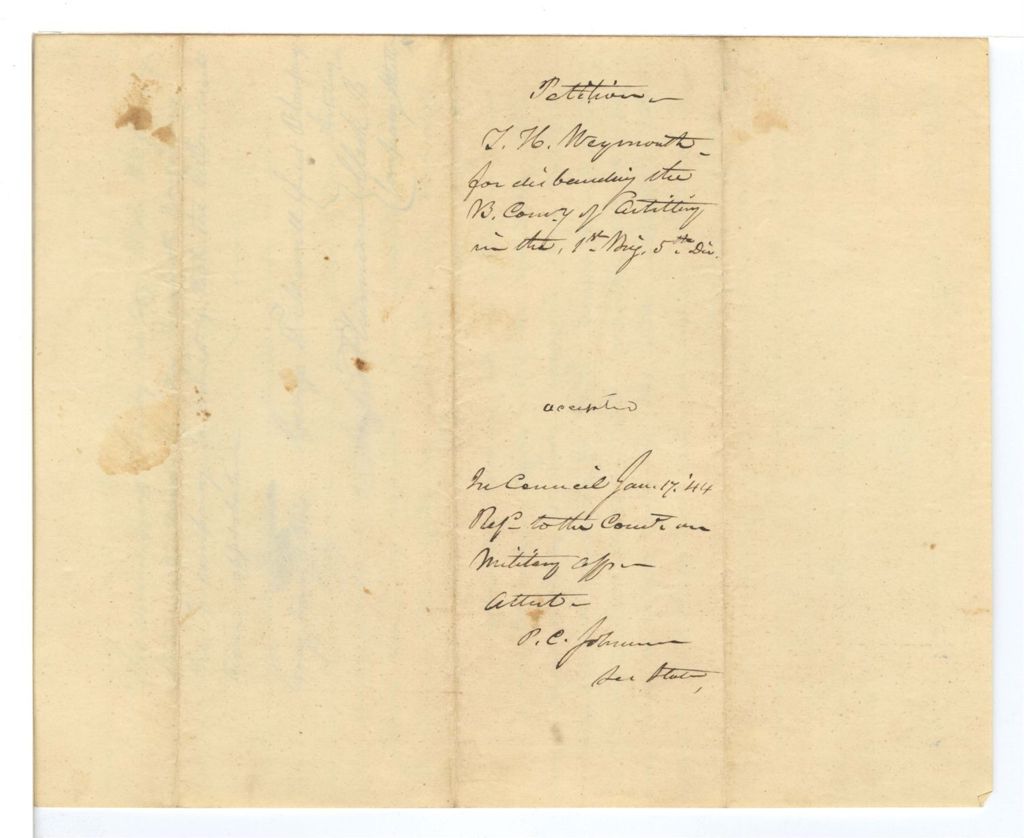 Petition
T. H. Weymouth
for disbanding the
B. Comy of Artillery
in the, 1st Brig. 5th Div.
accepted
In Council Jan. 17. '44
Refd to the Comt. on
Military affr
Attest
P. C. Johnson
Sec State,